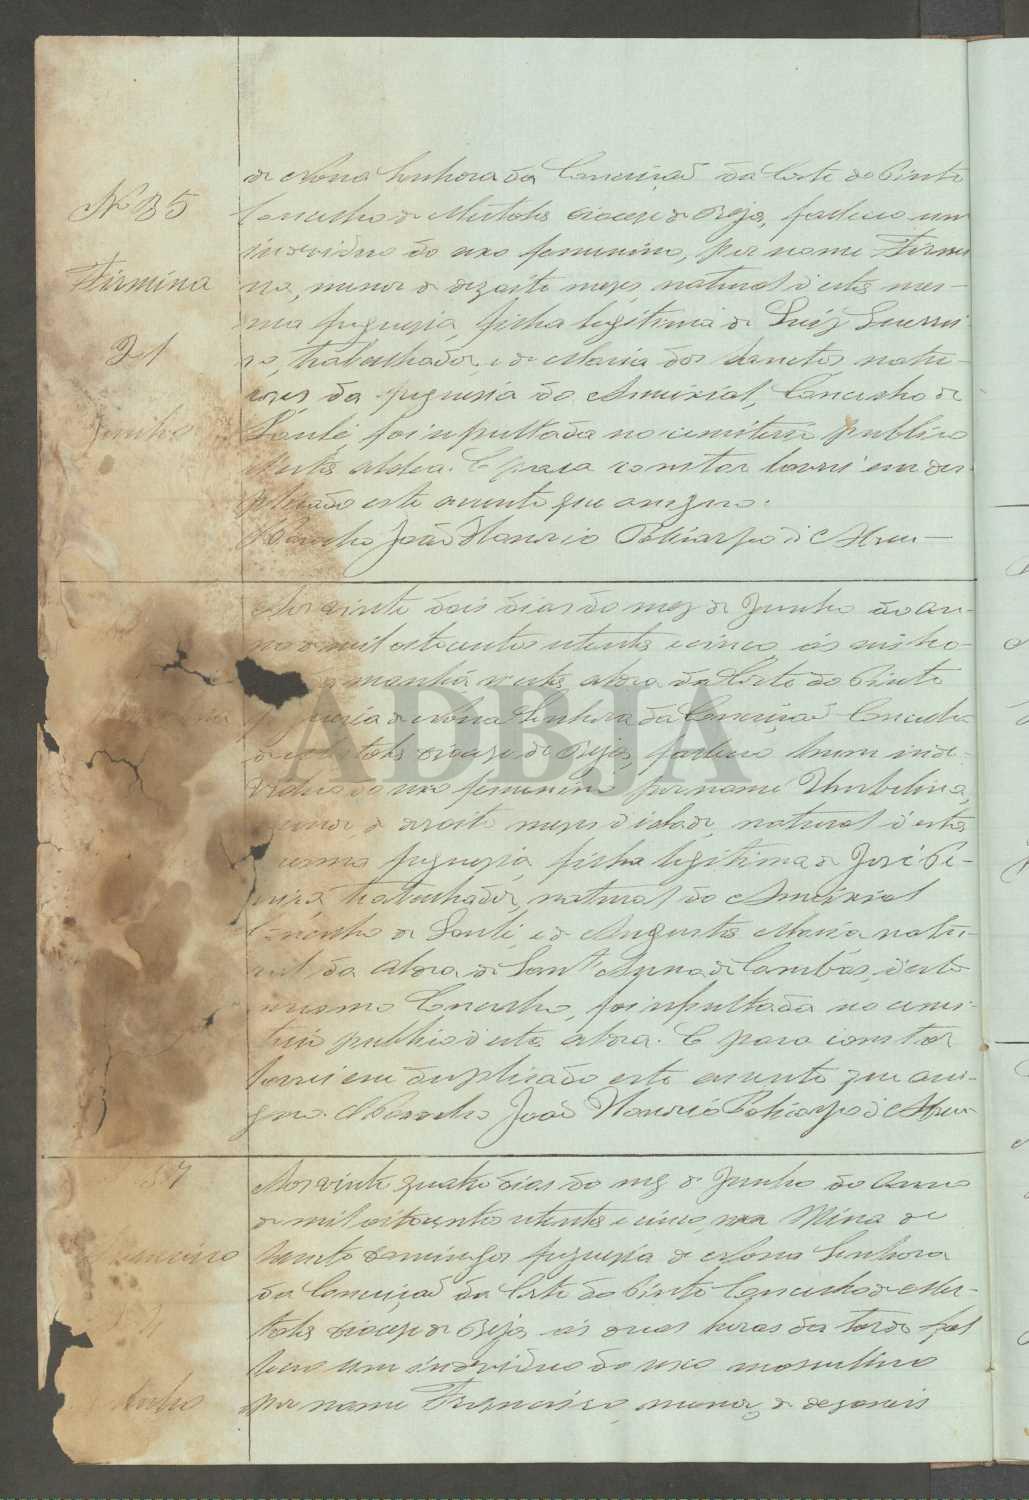 Nº 35
Firmina
21
Junho
de Nossa Senhora da Conceição da Corte do Pinto
Concelho de Mertola diocese de Beja, faleceo um
individuo do sexo femenino, por nome Firmi-
na, menor de dezoito mezes, natural d'esta mes-
ma freguezia, filha legitima de Luiz Guerrei-
ro, trabalhador, e de Maria dos Santos, natu-
raes da freguezia do Ameixial, Concelho de
Loulé, foi sepultada no cemiterio publico
d'esta aldea. E para constar lavrei em du-
plicado este assento que assigno.
O Parocho João Honorio Policarpo d'
Aos vinte dois dias do mez de Junho do an-
no de mil oitocentos oitenta e cinco, ás
manhã n'esta aldea da Corte do Pinto
freguezia de Nossa Senhora da Conceição Concelho
de Mertola diocese de Beja, faleceo hum indi-
viduo do sexo femenino por nome Umbelina,
menor de dezoito mezes d'idade, natural d'esta
mesma freguezia, filha legitima de José Pe-
reira trabalhador, natural do Ameixial
Concelho de Loulé, e de Augusta Maria natu-
ral da aldea de Sant'Anna de Cambas, d'este
mesmo Concelho, foi sepultada no cemi-
terio publico d'esta aldea. E para constar
lavrei em duplicado este assento que assi-
gno. O Parocho João Honorio Policarpo d'
37
Francisco
Junho
Aos vinte quatro dias do mez de Junho do anno
de mil oitocentos oitenta e cinco, na Mina de
Santo Domingos freguezia de Nossa Senhora
da Conceição da Corte do Pinto Concelho de Mer-
tola diocese de Beja ás duas horas da tarde fal
leceo um individuo do sexo masculino
por nome Francisco, menor, de
ADBJA